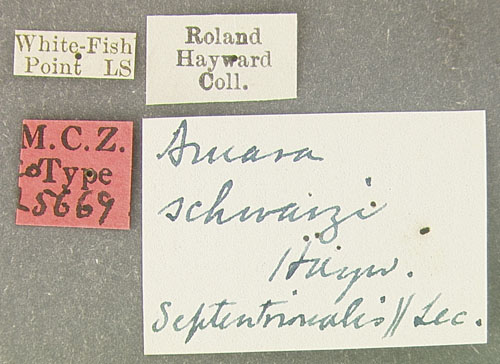 White-Fish
Point LS
Roland
Hayward
Coll.
M.C.Z.
Type
25669
Amara
schwarzi
Hayw.
Septentrionalis || Lec.